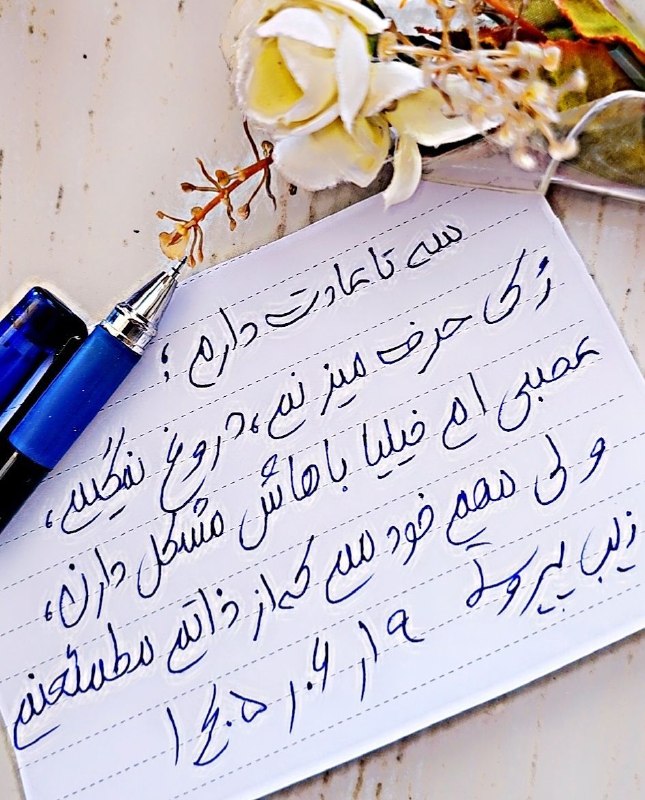 سه تا عادت دارم؛
رُکی حرف میزنم، دروغ نمیگم،
عصبی ام خیلیا باهاش مشکل دارن،
ولی مهم خودمم که از ذاتم مطمئنم
زینب پیروی
۱۴۰۵/۰۶/۱۹